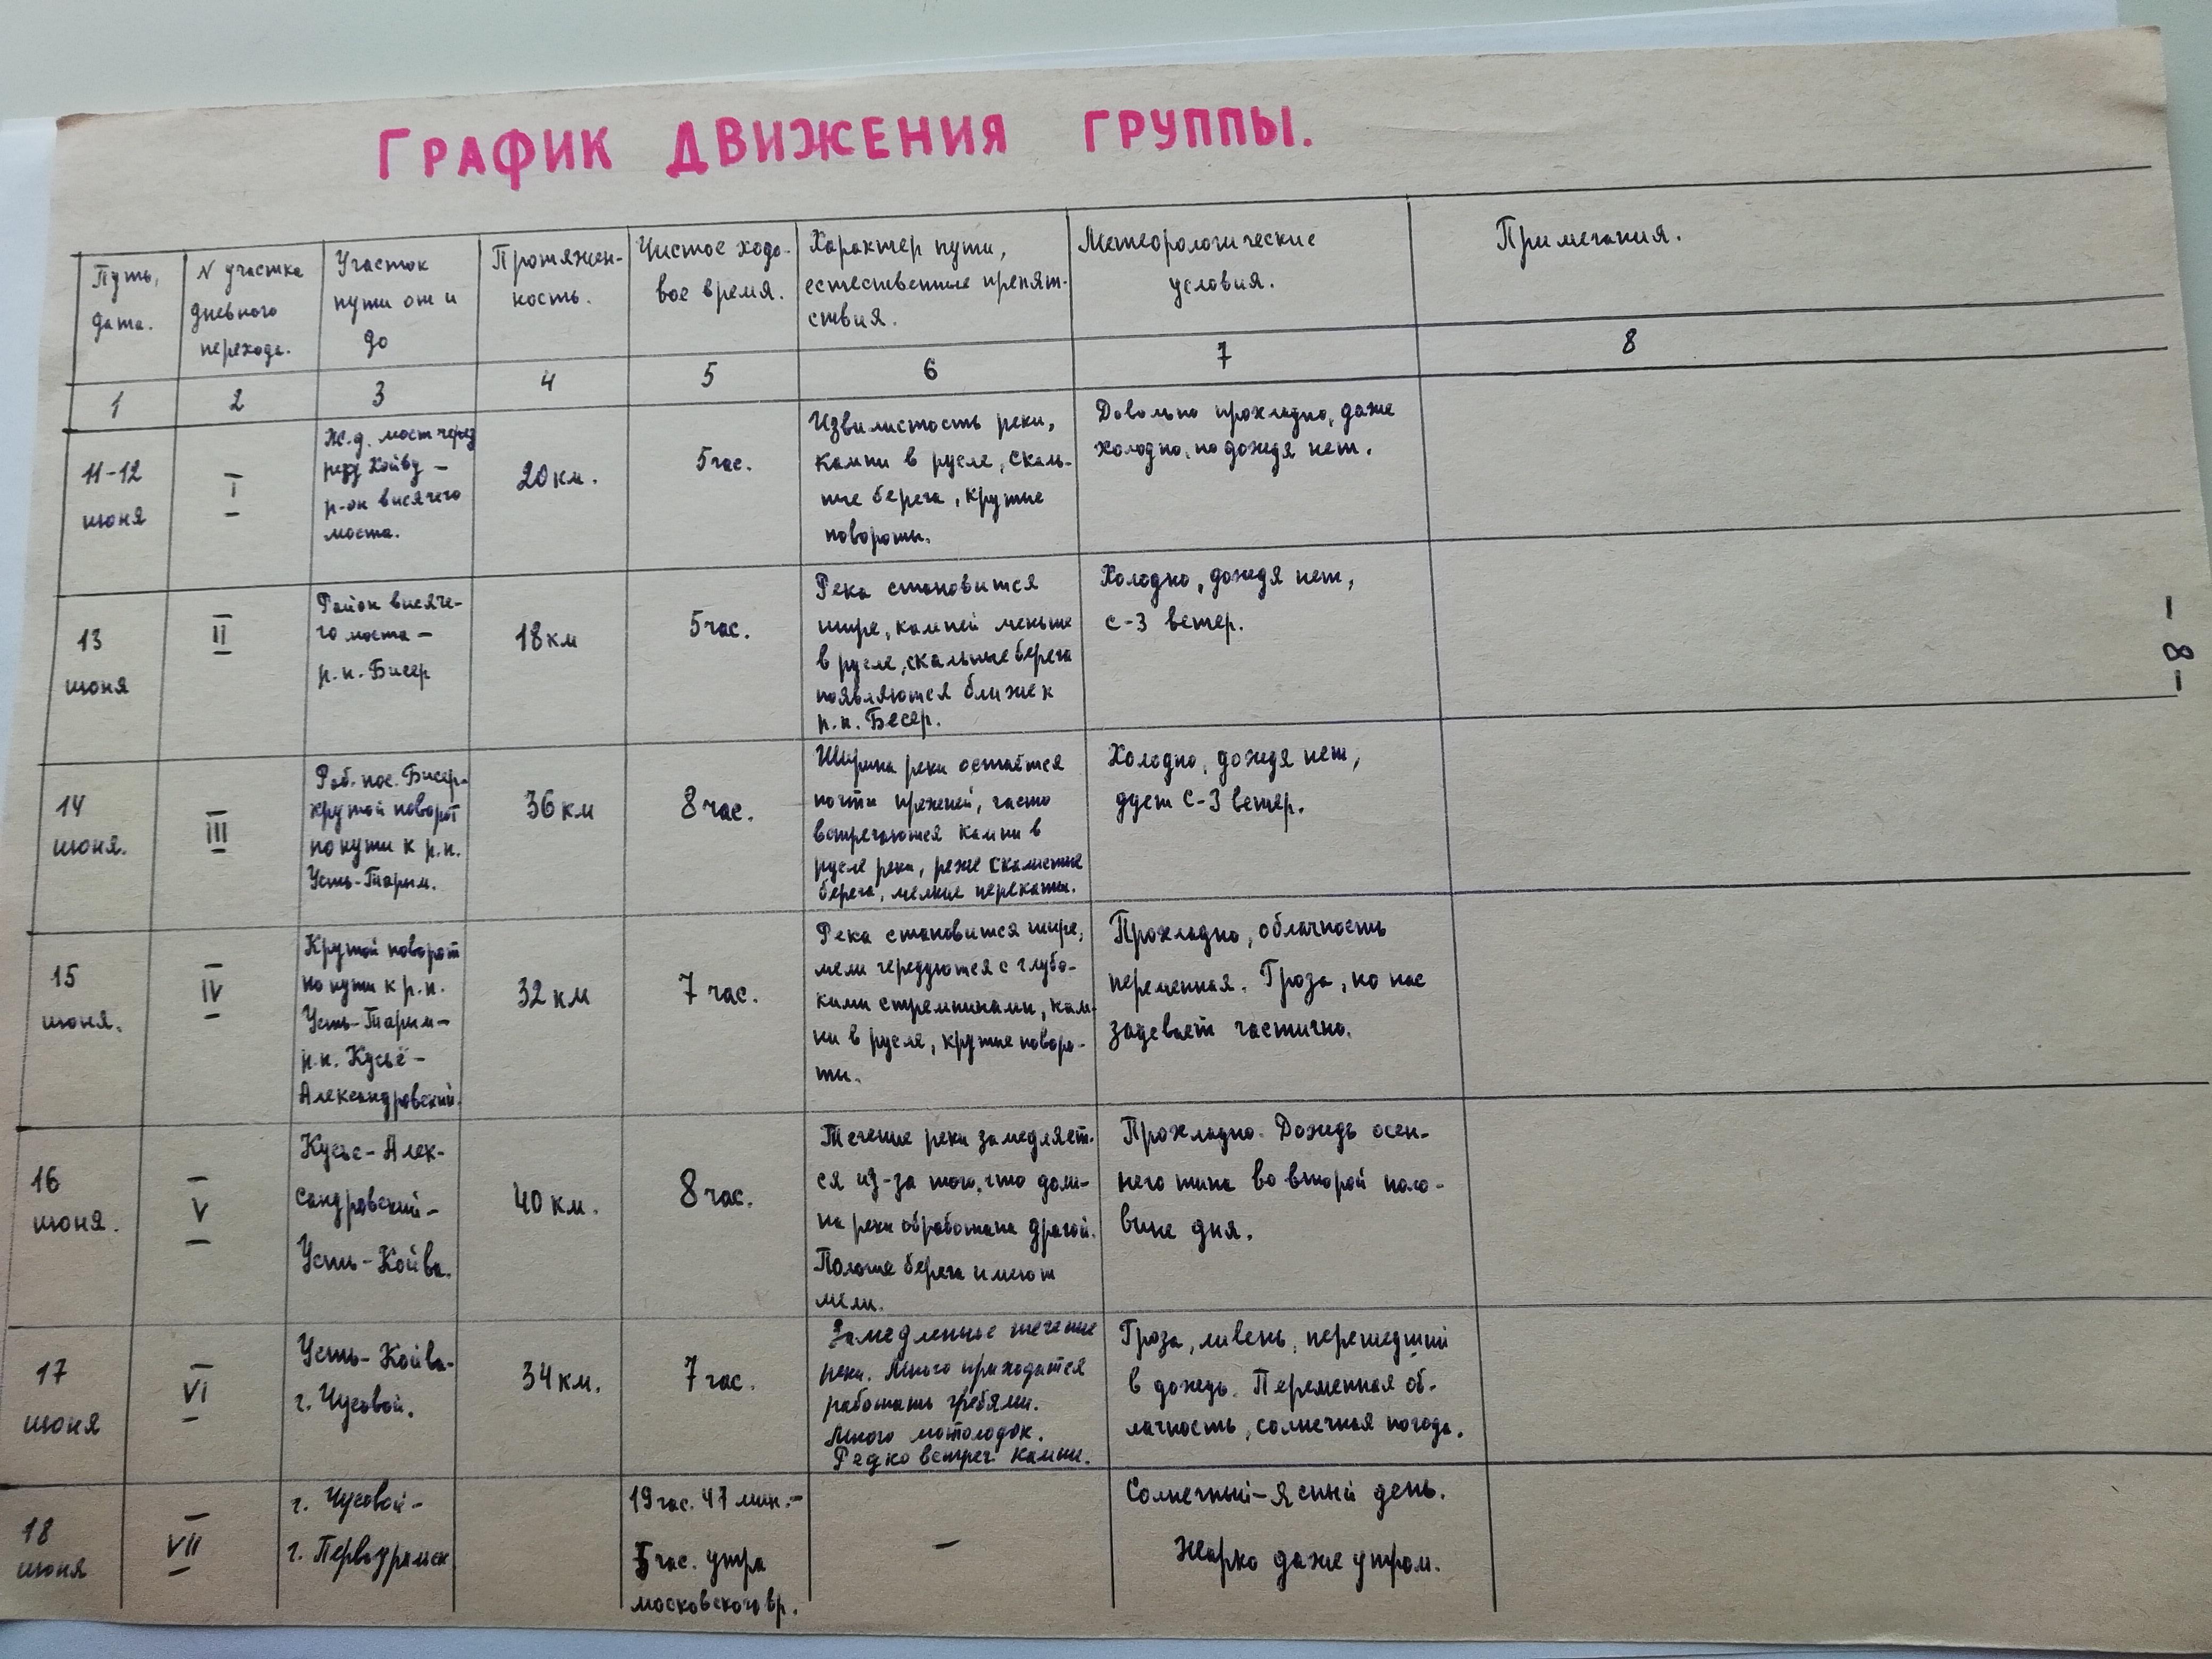 ГРАФИК ДВИЖЕНИЯ ГРУППЫ.
Путь,
дата.
N участка
дневного
перехода.
Участок
пути от и
до
Протяжен-
ность.
Чистое ходо-
вое время.
Характер пути,
естественные препят-
ствия.
Метеорологические
условия.
Примечания.
1
2
3
4
5
6
7
8
11-12
июня
I
Ж.д. мост через
реку Койву -
р-он висячего
моста.
20 км.
5 час.
Извилистость реки,
камни в русле, скаль-
ные берега, крутые
повороты.
Довольно прохладно, даже
холодно, но дождя нет.
13
июня
II
Район висяче-
го моста -
р.п. Бисер
18 км
5 час.
Река становится
шире, камней меньше
в русле, скальные берега
появляются ближе к
р.п. Бесер.
Холодно, дождя нет,
С-З ветер.
14
июня.
III
Раб. пос. Бисер-
крутой поворот
по пути к р.п.
Усть-Тырым.
36 км
8 час.
Ширина реки остаётся
почти прежней, часто
встречаются камни в
русле реки, реже скалистые
берега, мелкие перекаты.
Холодно, дождя нет,
дует С-З ветер.
15
июня.
IV
Крутой поворот
по пути к р.п.
Усть-Тырым-
р.п. Кусьё-
Александровский.
32 км
7 час.
Река становится шире,
мели чередуются с глубо-
кими стремнинами, кам-
ни в русле, крутые поворо-
ты.
Прохладно, облачность
переменная. Гроза, но нас
задевает частично.
16
июня.
V
Кусье-Алек-
сандровский-
Усть-Койва.
40 км.
8 час.
Течение реки замедляет-
ся из-за того, что доли-
на реки обработана драгой.
Пологие берега имеют
мели.
Прохладно. Дождь осен-
него типа во второй поло-
вине дня.
17
июня
VI
Усть-Койва-
г. Чусовой.
34 км.
7 час.
Замедленное течение
реки. Много приходится
работать гребями.
Много мотолодок.
Редко встреч. камни.
Гроза, ливень, перешедший
в дождь. Переменная об-
лачность, солнечная погода.
18
июня
VII
г. Чусовой-
г. Первоуральск
19 час. 47 мин.-
5 час. утра
московского вр.
-
Солнечный-ясный день.
Жарко даже утром.
- 8 -